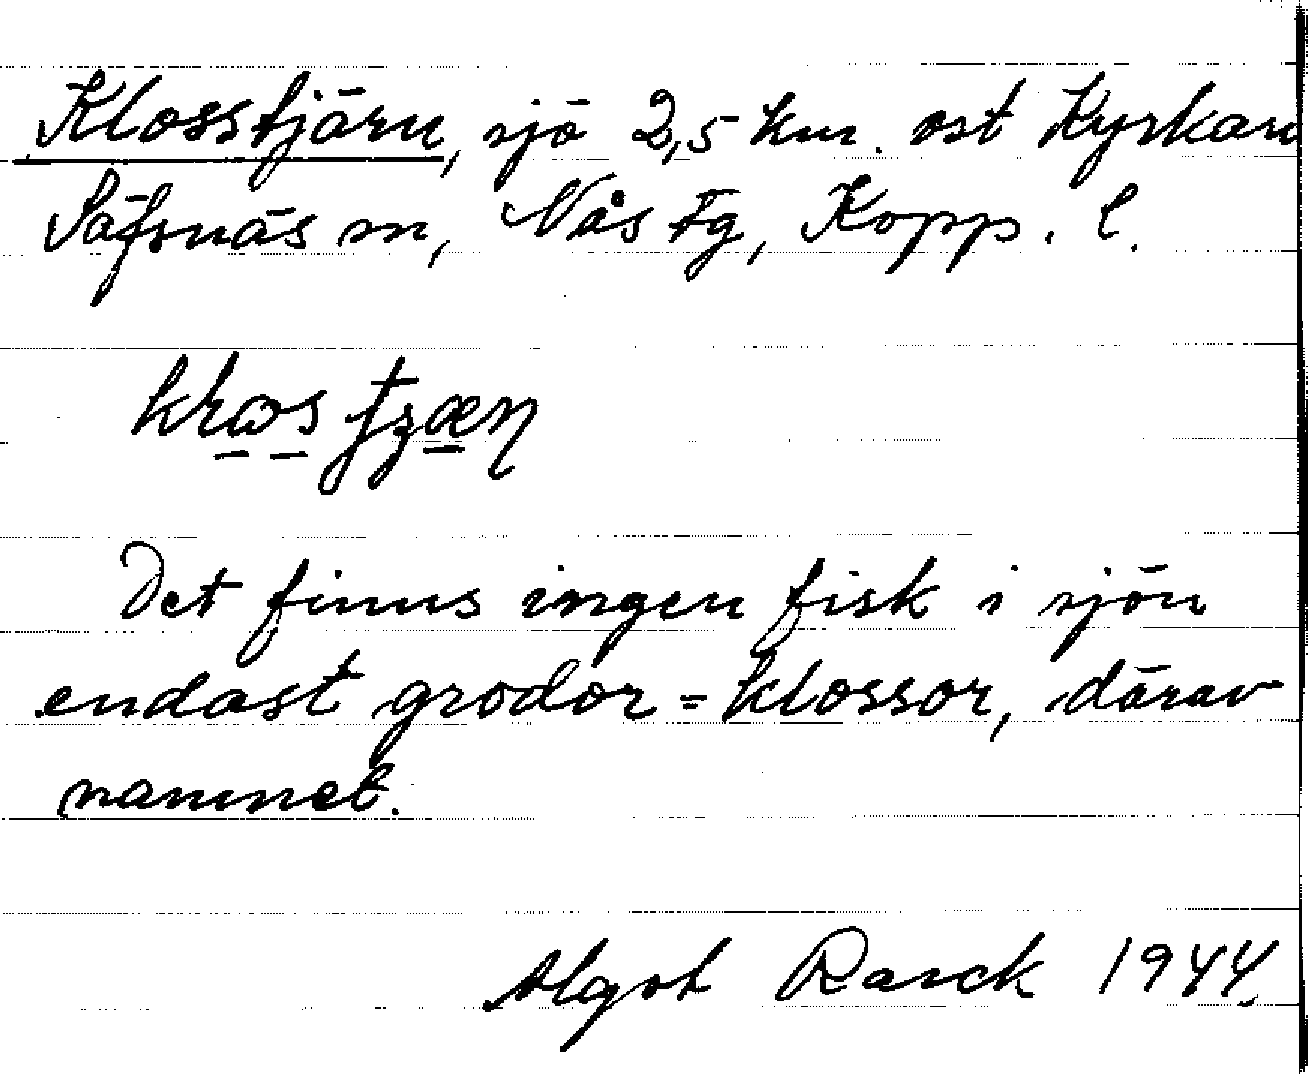 Klosstjärn, sjö 2,5 km. ost Kyrkan
Säfsnäs sn, Nås tg, Kopp. l.
Det finns ingen fisk i sjön
endast grodor = klossor, därav
namnet.
Algot Rarck 1944.